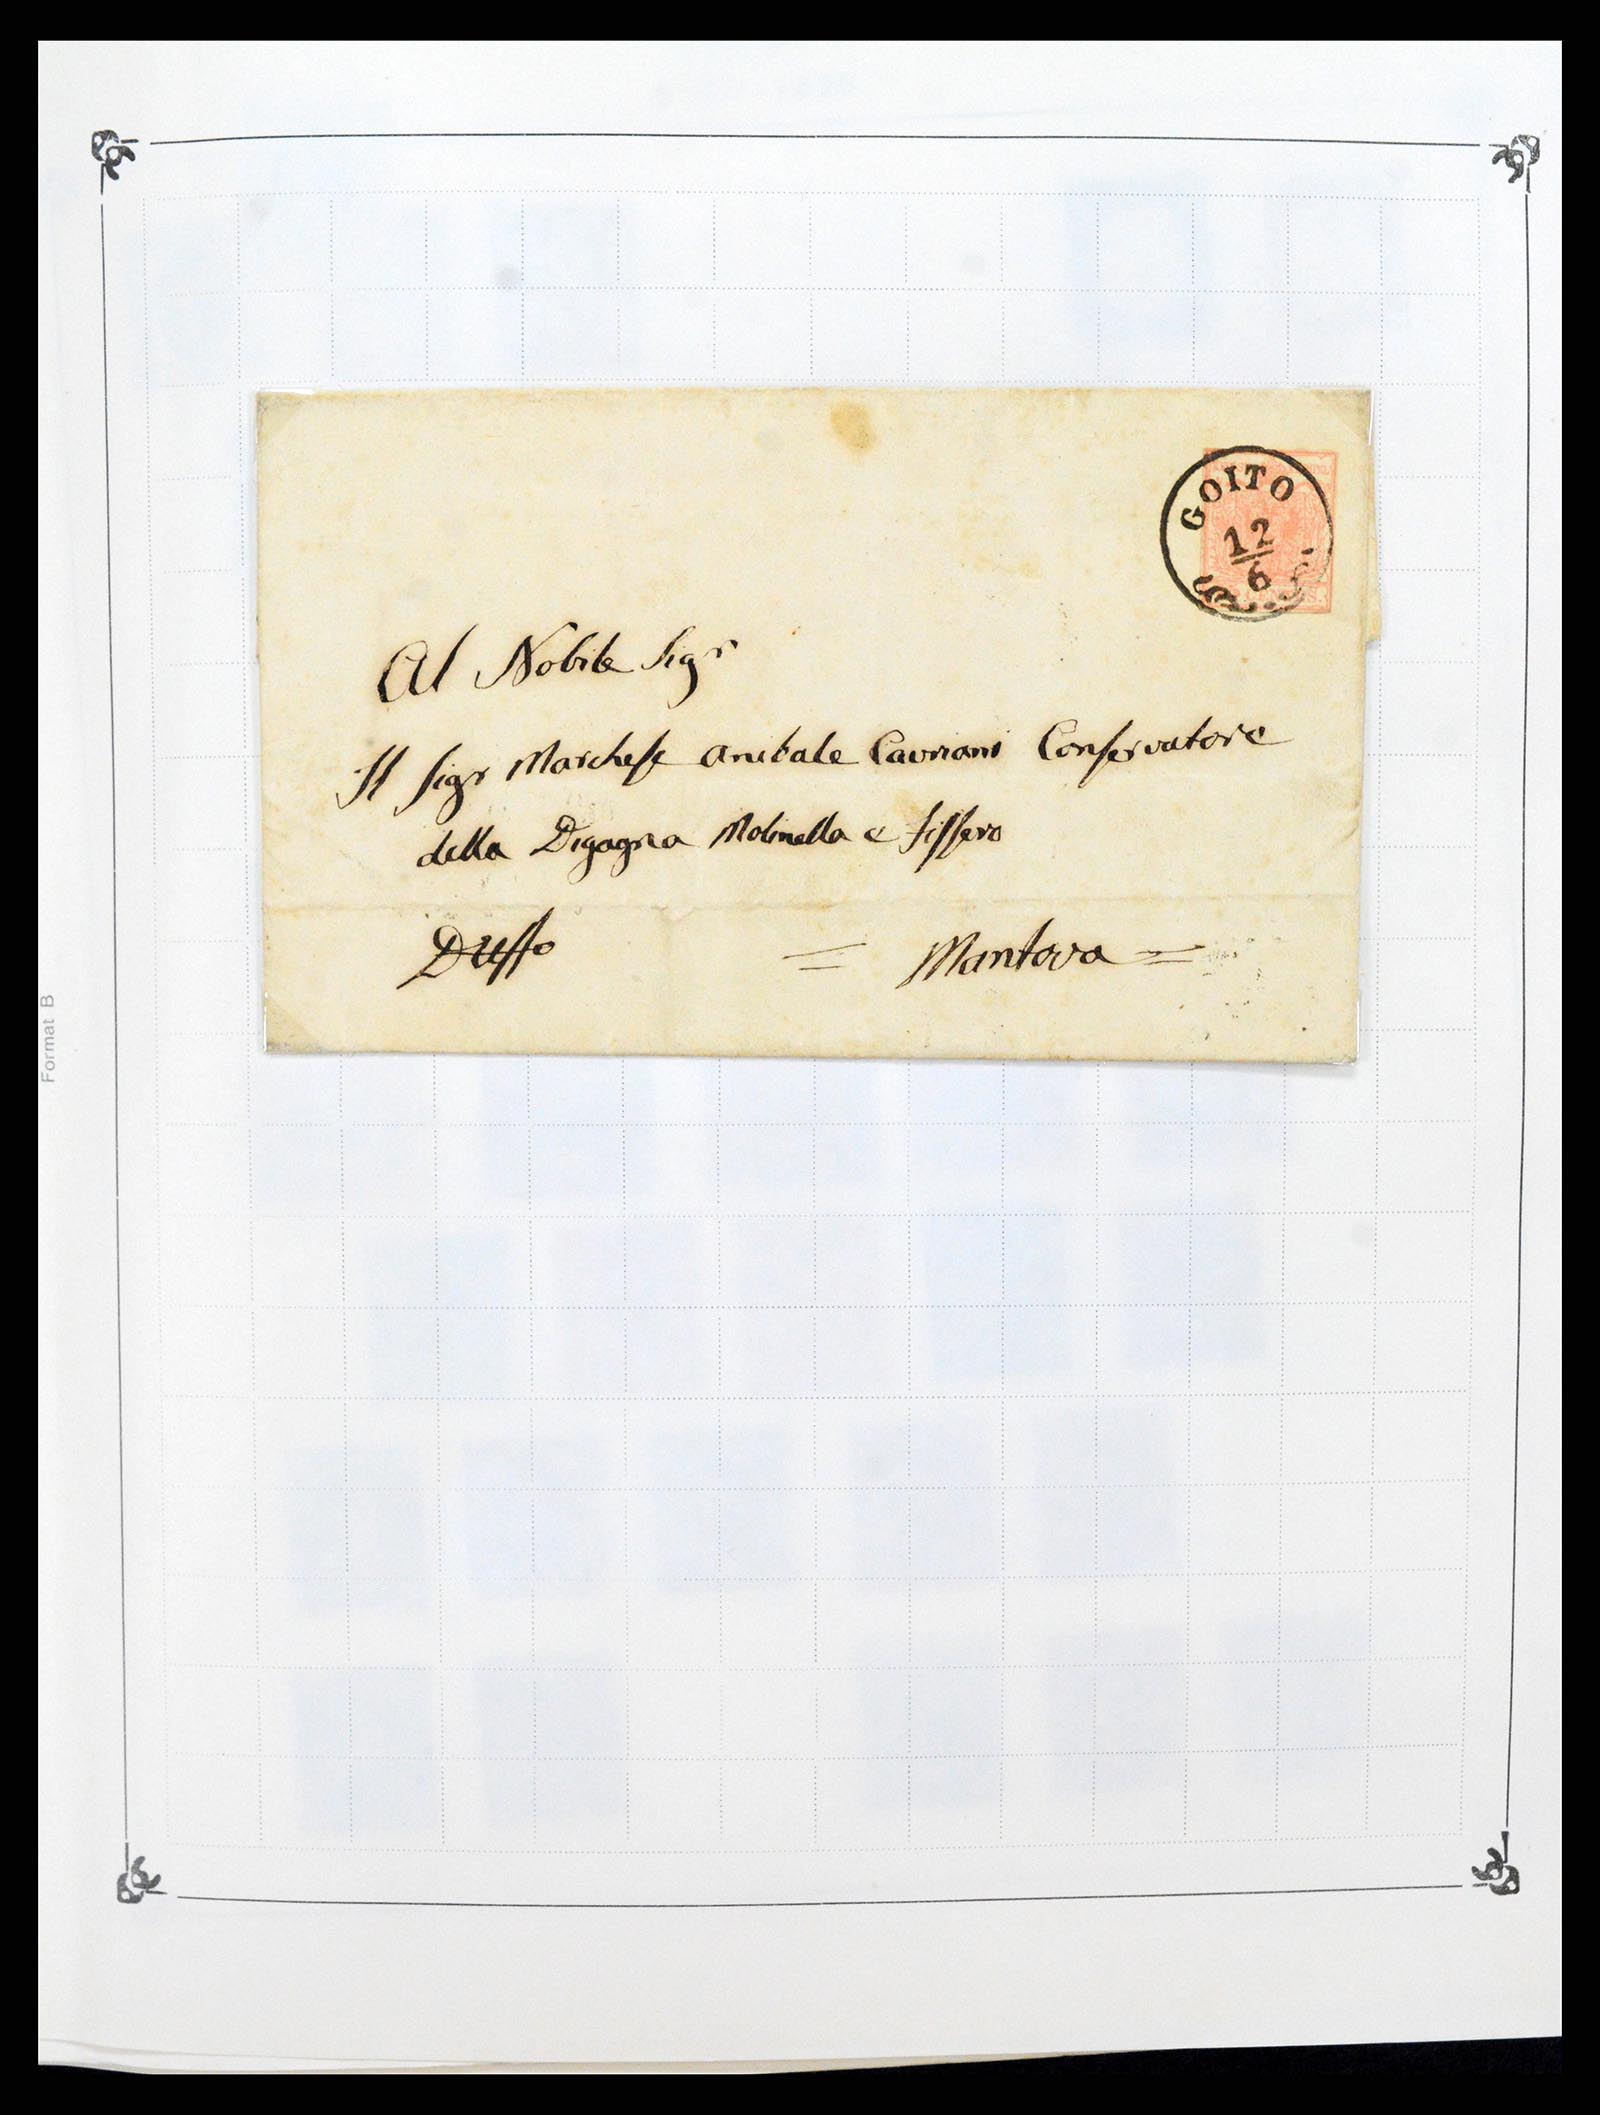 GOITO
12
6
Al Nobile Sigr
Il Sigr Marchese Anibale Cavriani Conservatore
della Digagna Molinella e Fissero
Duffo = Mantova =
Format B